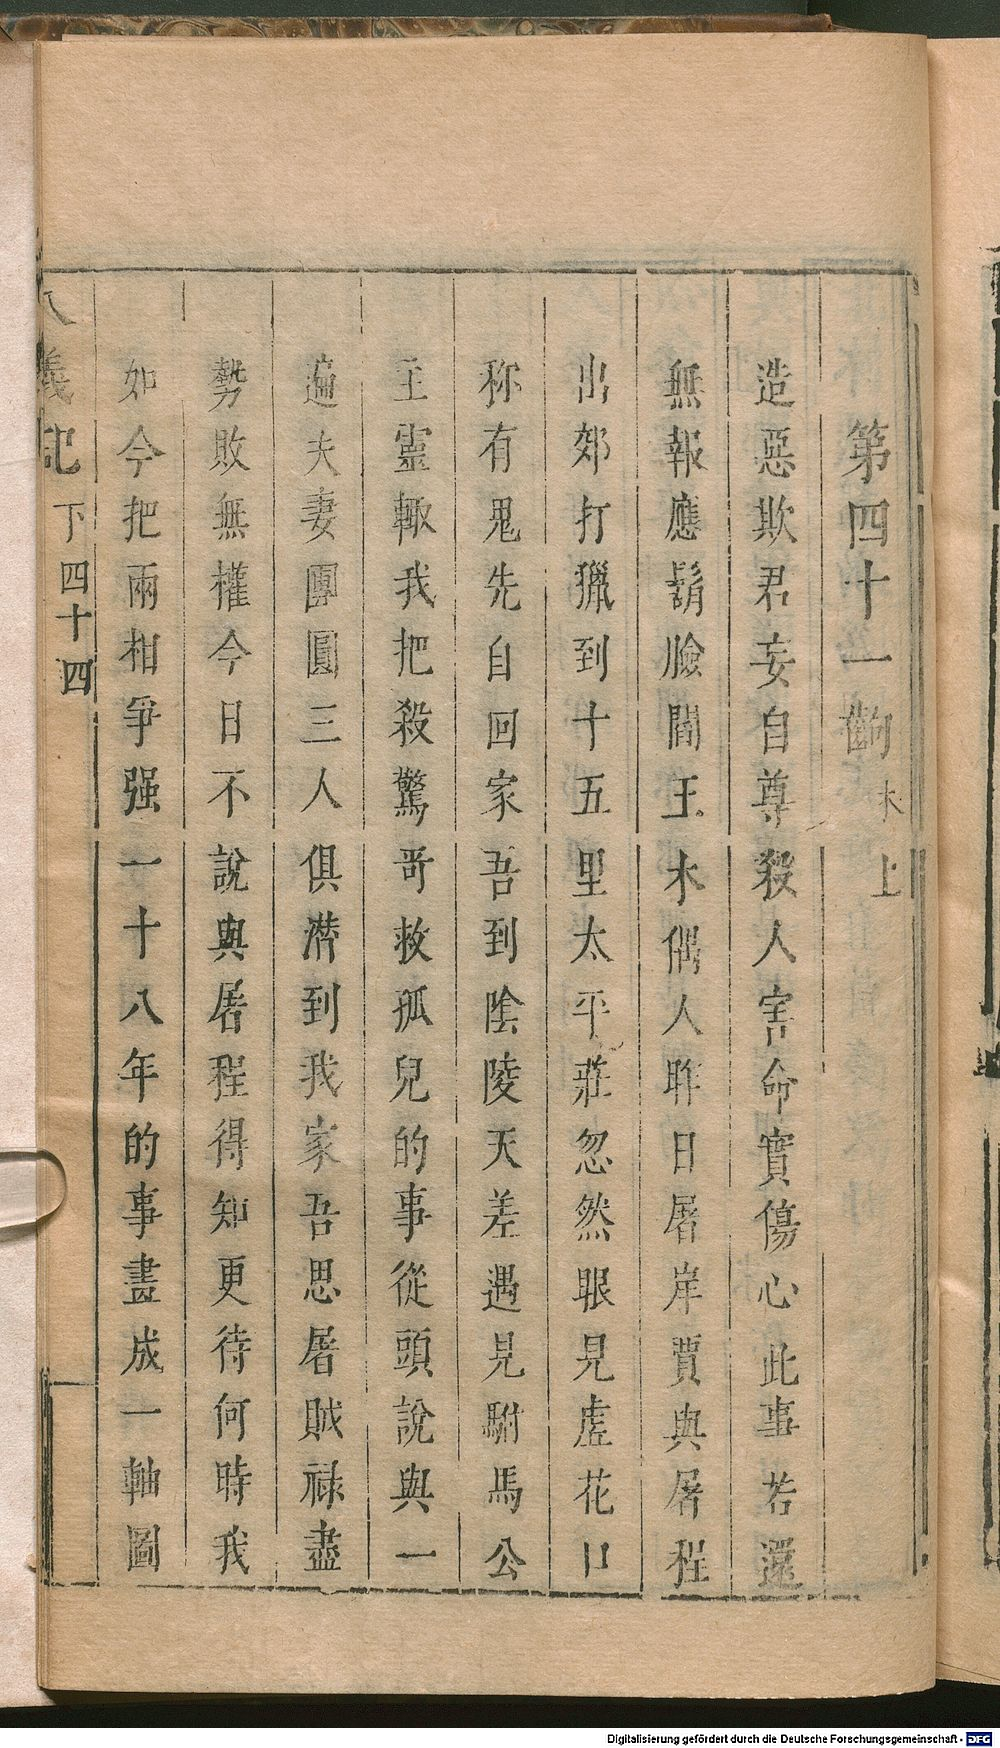 第四十一齣 末上
造惡欺君妄自尊殺人害命實傷心此事若還
無報應鬍臉閻王木偶人昨日屠岸賈與屠程
出郊打獵到十五里太平莊忽然眼見虛花口
称有鬼先自回家吾到陰陵天差遇見駙馬公
主靈輙我把殺驚哥救孤兒的事從頭說與一
遍夫妻團圓三人俱潜到我家吾思屠賊禄盡
勢敗無權今日不說與屠程得知更待何時我
如今把兩相爭强一十八年的事畫成一軸圖
八義記 下 四十四
Digitalisierung gefördert durch die Deutsche Forschungsgemeinschaft - DFG